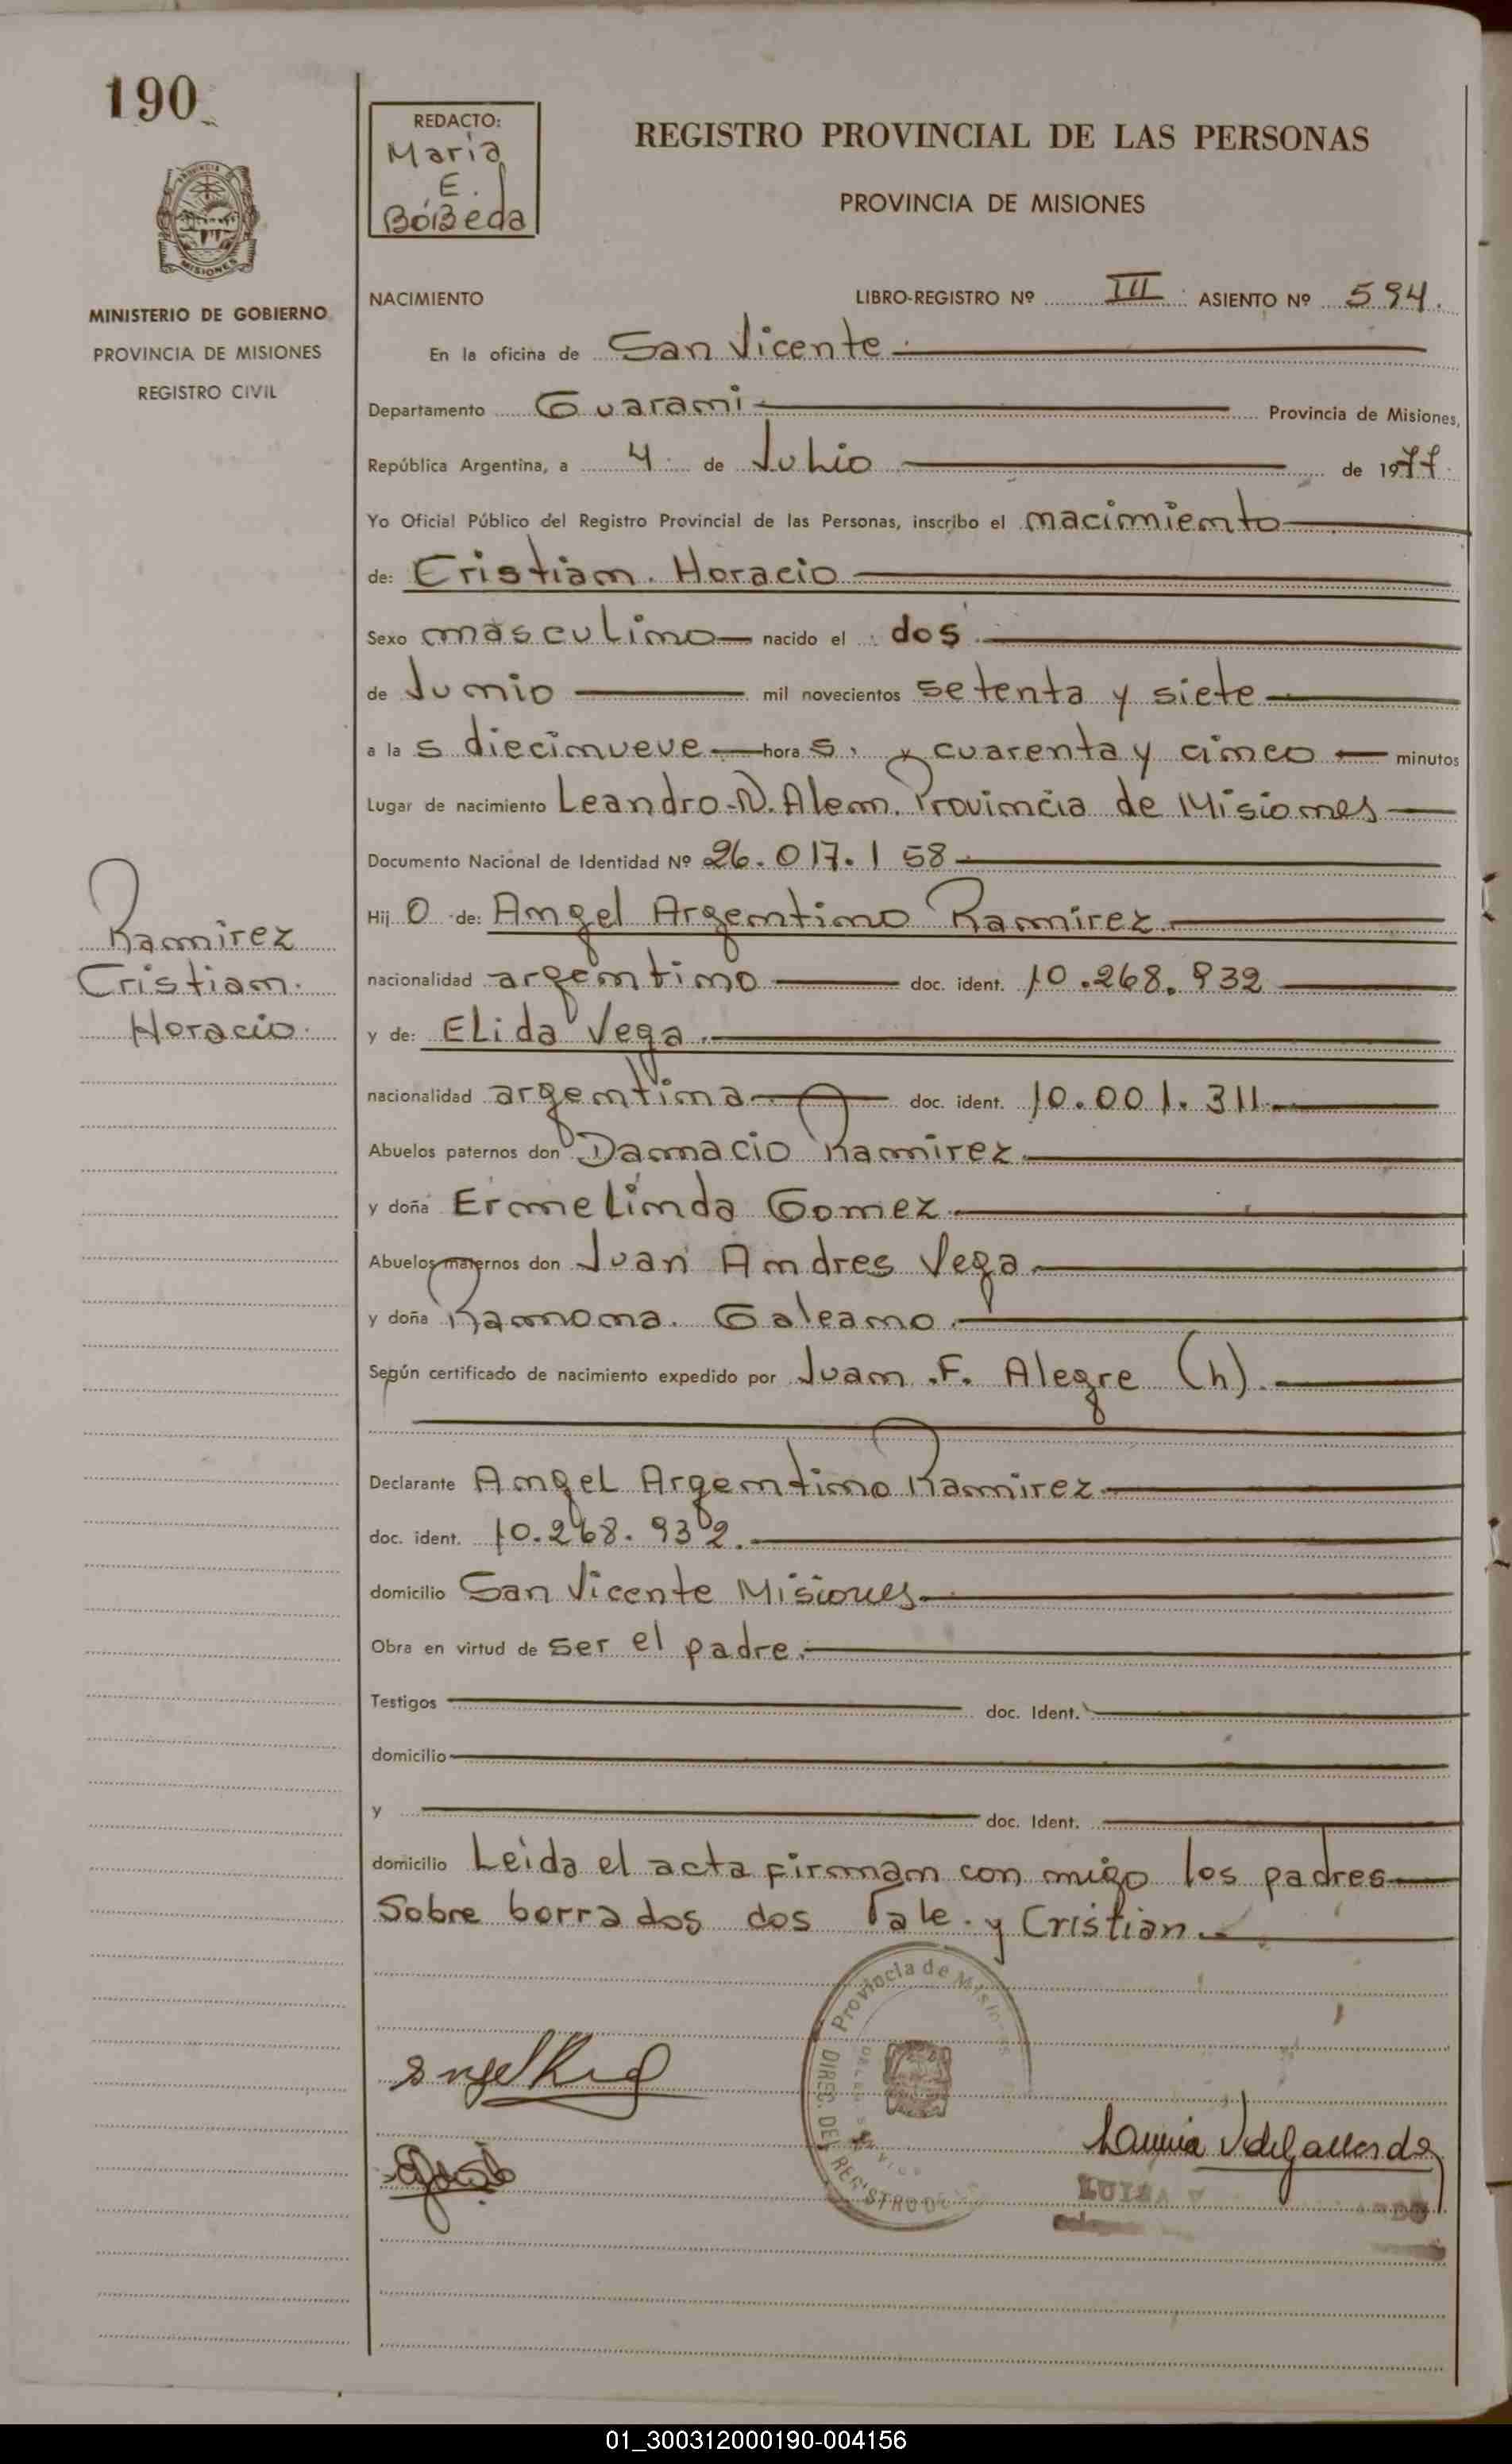 190
REDACTO:
Maria
E.
BóBeda
REGISTRO PROVINCIAL DE LAS PERSONAS
PROVINCIA DE MISIONES
PROVINCIA
MISIONES
MINISTERIO DE GOBIERNO
PROVINCIA DE MISIONES
REGISTRO CIVIL
NACIMIENTO LIBRO-REGISTRO Nº III ASIENTO Nº 594.
En la oficina de San Vicente
Departamento Guarami Provincia de Misiones,
República Argentina, a 4 de Julio de 1977.
Yo Oficial Público del Registro Provincial de las Personas, inscribo el nacimiento
de: Cristian. Horacio
Sexo masculino nacido el dos
de Junio mil novecientos setenta y siete
a la s diecinueve hora s, y cuarenta y cinco minutos
Lugar de nacimiento Leandro.N.Alem. Provincia de Misiones
Documento Nacional de Identidad Nº 26.017.158
Hij o de: Angel Argentino Ramirez
nacionalidad argentino doc. ident. 10.268.932
y de: Elida Vega
nacionalidad argentina doc. ident. 10.001.311
Abuelos paternos don Damacio Ramirez
y doña Ermelinda Gomez
Abuelos maternos don Juan Andres Vega
y doña Ramona. Galeano
Según certificado de nacimiento expedido por Juan .F. Alegre (h).
Ramirez
Cristian.
Horacio.
Declarante Angel Argentino Ramirez
doc. ident. 10.268.932.
domicilio San Vicente Misiones
Obra en virtud de ser el padre.
Testigos doc. Ident.
domicilio
y doc. Ident.
domicilio Leida el acta firman con migo los padres
Sobre borrados dos Vale. y Cristian.
Provincia de Misiones
DIREC. DEL REGISTRO DE
LUISA V
01_300312000190-004156